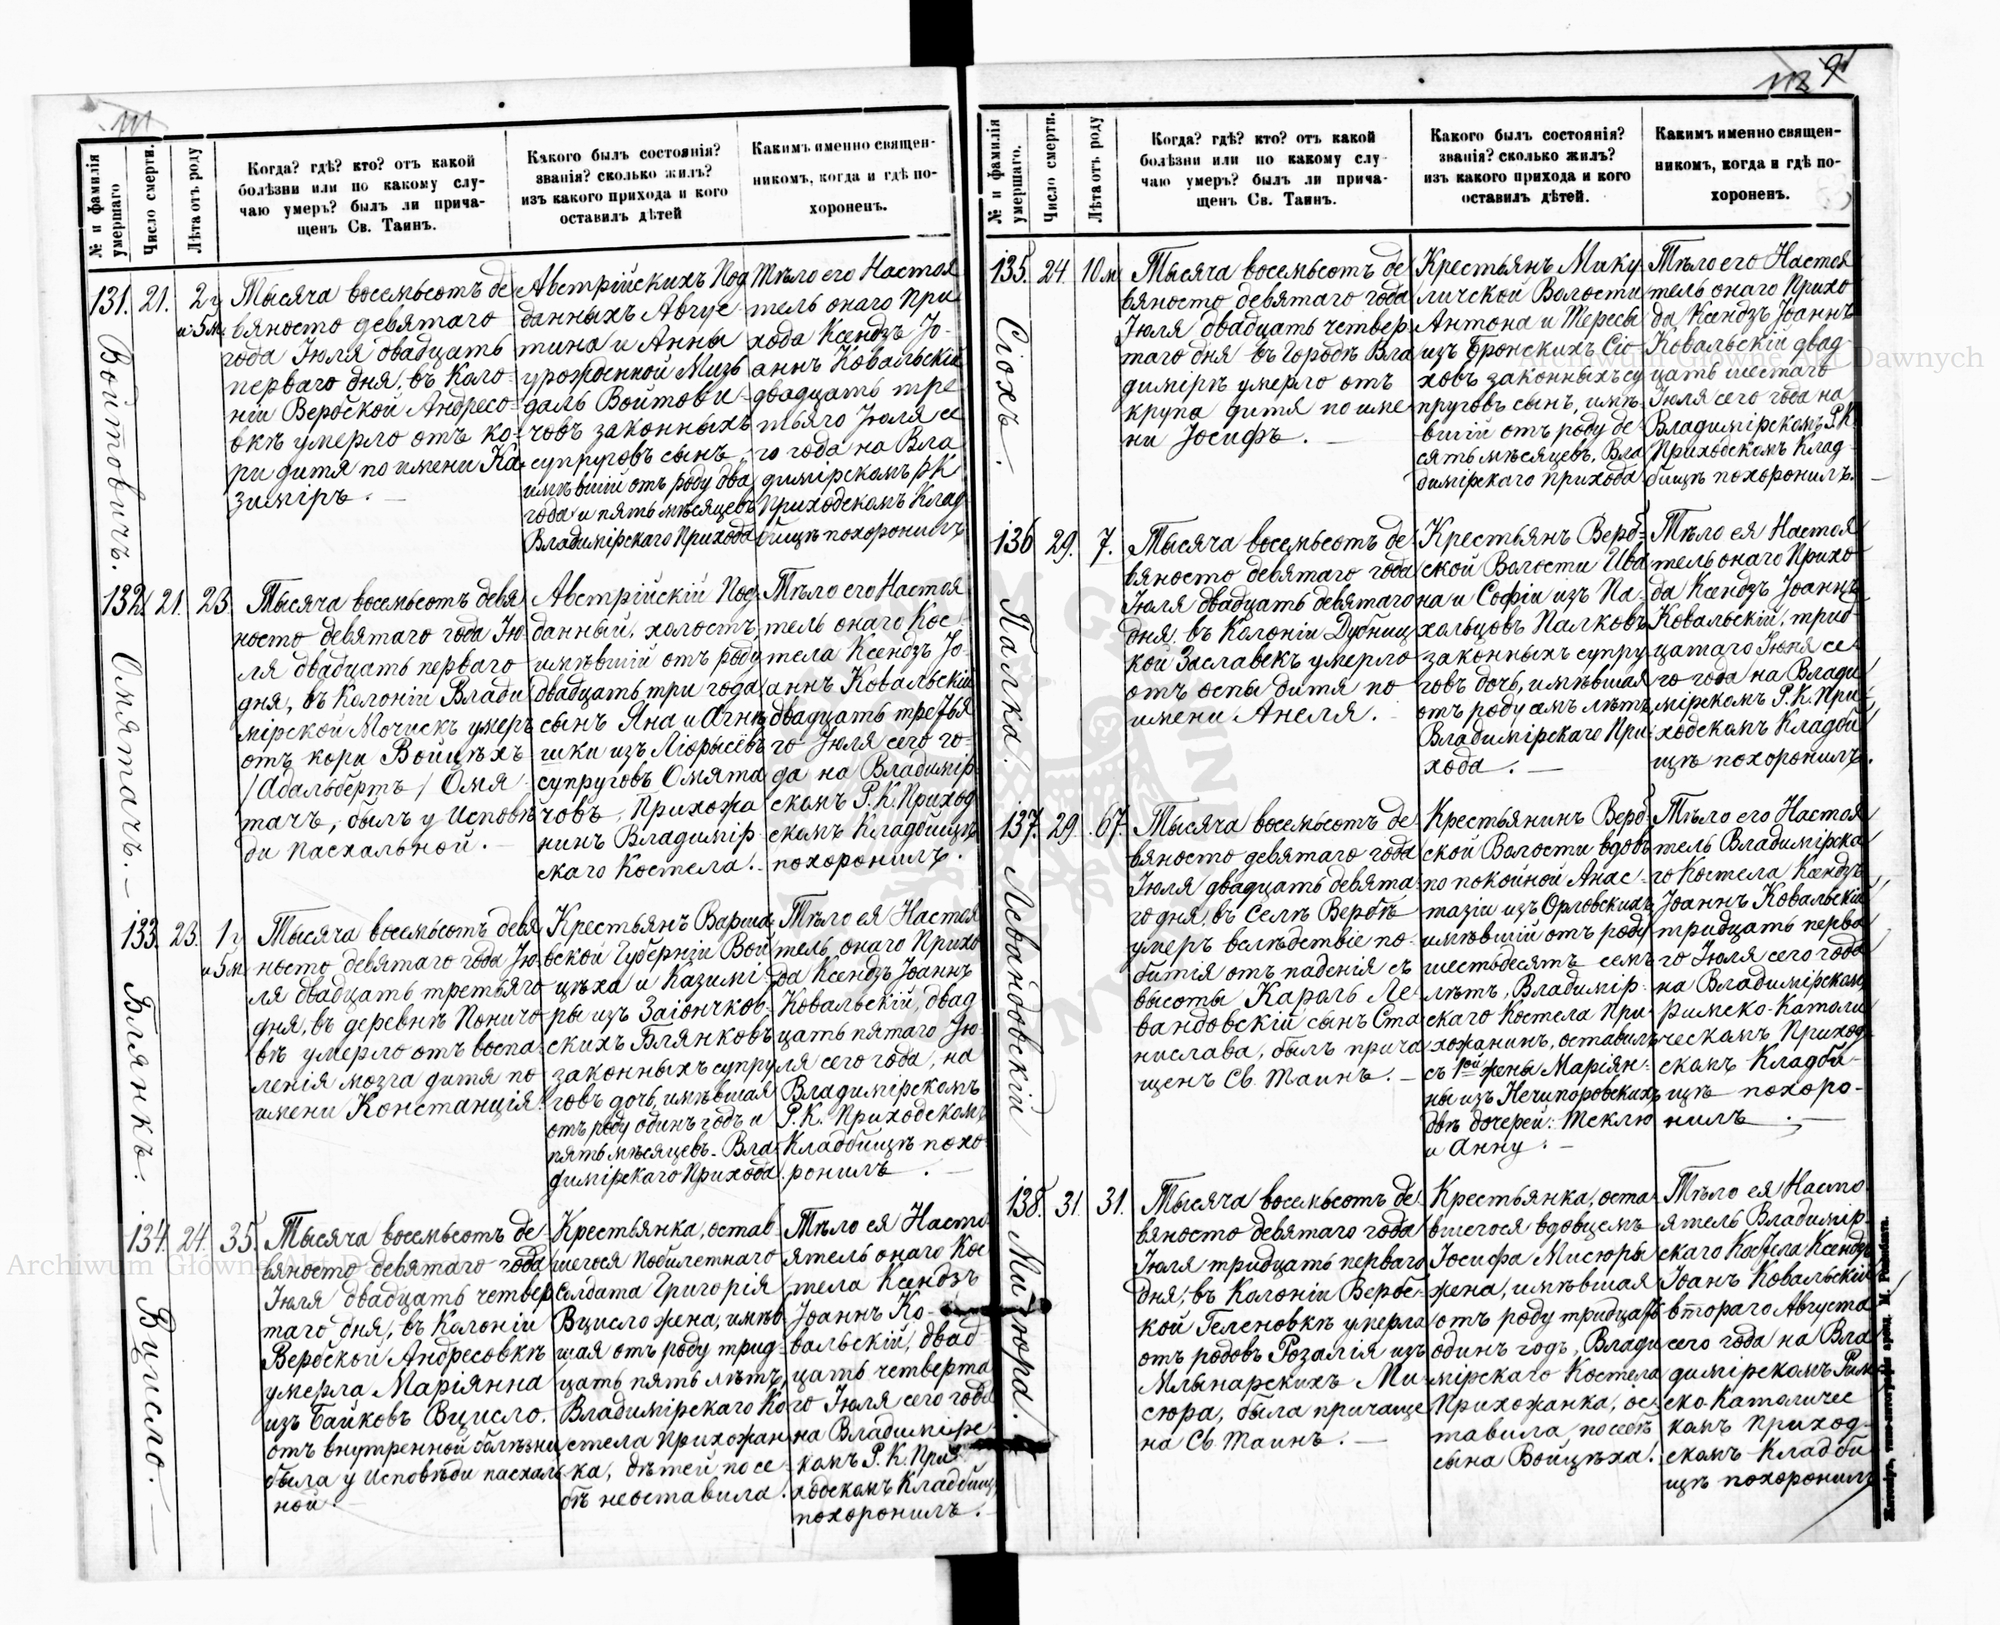 111
№ и фамилія умершаго
Число смерти.
Лѣта отъ роду
Когда? гдѣ? кто? отъ какой
болѣзни или по какому слу-
чаю умеръ? былъ ли прича-
щенъ Св. Таинъ.
Какого былъ состоянія?
званія? сколько жилъ?
изъ какого прихода и кого
оставилъ дѣтей
Какимъ именно священ-
никомъ, когда и гдѣ по-
хороненъ.
131.
Войтовичъ.
21.
2 г
и 5 м
Тысяча восемьсотъ де
вяносто девятаго
года Іюля двадцать
перваго дня, въ Коло-
ніи Вербской Андресо-
вкѣ умерло отъ ко-
ри дитя по имени Ка
зиміръ. —
Австрійскихъ Под
данныхъ Авгус
тина и Анны
урожденной Мизь
даль Войтови-
човъ законныхъ
супруговъ сынъ,
имѣвшій отъ роду два
года и пять мѣсяцевъ
Владимірскаго Прихода
Тѣло его Настоя
тель онаго При
хода Ксендзъ Іо-
аннъ Ковальскій
двадцать тре
тьяго Іюля се
го года на Вла
димірскомъ Р К
Приходскомъ Клад
бищѣ похоронилъ
132.
Омятачъ. —
21.
23.
Тысяча восемьсотъ девя
носто девятаго года Ію
ля двадцать перваго
дня, въ Колоніи Влади
мірской Мочискъ умеръ
отъ кори Войцѣхъ
/Адальбертъ/ Омя
тачъ, былъ у Исповѣ
ди пасхальной. —
Австрійскій Под
данный, холостъ,
имѣвшій отъ роду
двадцать три года
сынъ Яна и Агнѣ
шки изъ Люрысёвъ
супруговъ Омята
човъ, Прихожа
нинъ Владимір
скаго Костела. -
Тѣло его Настоя
тель онаго Кос
тела Ксендзъ Іо-
аннъ Ковальскій
двадцать третья
го Іюля сего го-
да на Владимір
скомъ Р. К. Приход
скомъ Кладбищѣ
похоронилъ.
133.
Блянкъ.
23.
1 г
и 5 м
Тысяча восемьсотъ девя
носто девятаго года Ію
ля двадцать третьяго
дня, въ деревнѣ Поничо
вѣ умерло отъ воспа
ленія мозга дитя по
имени Констанція.
Крестьянъ Варша
вской Губерніи Вой
цѣха и Казимі-
ры изъ Заіончков-
скихъ Блянковъ
законныхъ супру
говъ дочь, имѣвшая
отъ роду одинъ годъ и
пять мѣсяцевъ. Вла
димірскаго Прихода
Тѣло ея Настоя
тель онаго Прихо
да Ксендзъ Іоаннъ
Ковальскій, двад
цать пятаго Ію-
ля сего года, на
Владимірскомъ
Р. К. Приходскомъ
Кладбищѣ похо-
ронилъ. —
134.
Вцисло. —
24.
35.
Тысяча восемьсотъ де-
вяносто девятаго года
Іюля двадцать четвер
таго дня, въ Колоніи
Вербской Андресовкѣ
умерла Маріянна
изъ Байковъ Вцисло.
отъ внутренной болѣзни
была у Исповѣди пасхаль
ной. —
Крестьянка, остав
шегося побилетнаго
солдата Григорія
Вцисло жена, имѣв-
шая отъ роду трид-
цать пять лѣтъ,
Владимірскаго Ко
стела Прихожан
ка, дѣтей по се
бѣ неоставила.
Тѣло ея Насто
ятель онаго Кос
тела Ксендзъ
Іоаннъ Ко-
вальскій, двад-
цать четверта
го Іюля сего года
на Владимірс
комъ Р. К. При
ходскомъ Кладбищѣ
похоронилъ. —
91
№ и фамилія умершаго.
Число смерти.
Лѣта отъ роду
Когда? гдѣ? кто? отъ какой
болѣзни или по какому слу-
чаю умеръ? былъ ли прича-
щенъ Св. Таинъ.
Какого былъ состоянія?
званія? сколько жилъ?
изъ какого прихода и кого
оставилъ дѣтей.
Какимъ именно священ-
никомъ, когда и гдѣ по-
хороненъ.
135.
Сіохъ.
24.
10 м
Тысяча восемьсотъ де
вяносто девятаго года
Іюля двадцать четвер
таго дня въ Городѣ Вла
димірѣ умерло отъ
крупа дитя по име
ни Іосифъ. —
Крестьянъ Мику
личской Волости
Антона и Тересы
изъ Бронскихъ Сіо
ховъ законныхъ су
пруговъ сынъ, имѣ-
вшій отъ роду де
сять мѣсяцевъ, Вла
димірскаго Прихода
Тѣло его Настоя
тель онаго Прихо
да Ксендзъ Іоаннъ
Ковальскій двад-
цать шестаго
Іюля сего года на
Владимірскомъ Р. К.
Приходскомъ Клад-
бищѣ похоронилъ. —
136
Палка.
29.
7.
Тысяча восемьсотъ де
вяносто девятаго года
Іюля двадцать девятаго
дня, въ Колоніи Дубниц
кой Заславекъ умерло
отъ оспы дитя по
имени Анеля. -
Крестьянъ Верб-
ской Волости Ива
на и Софіи изъ Па-
хольцовъ Палковъ
законныхъ супру
говъ дочь, имѣвшая
отъ роду семь лѣтъ
Владимірскаго При
хода. —
Тѣло ея Настоя
тель онаго Прихо
да Ксендзъ Іоаннъ
Ковальскій, трид
цатаго Іюля се
го года на Влади
мірскомъ Р. К. При
ходскомъ Кладби
щѣ похоронилъ.
137.
Левандовскій
29.
67.
Тысяча восемьсотъ де
вяносто девятаго года
Іюля двадцать девята-
го дня, въ Селѣ Вербѣ
умеръ вслѣдствіе по-
битія отъ паденія съ
высоты Кароль Ле-
вандовскій, сынъ Ста
нислава, былъ прича
щенъ Св. Таинъ. —
Крестьянинъ Верб
ской Волости вдовъ
по покойной Анас-
тазіи изъ Орловскихъ
имѣвшій отъ роду
шестьдесятъ семь
лѣтъ, Владимір-
скаго Костела При
хожанинъ, оставилъ
съ 1ой жены Маріян-
ны изъ Нечипоровскихъ
двѣ дочерей: Теклю
и Анну. —
Тѣло его Настоя
тель Владимірска
го Костела Ксендзъ
Іоаннъ Ковальскій
тридцать перва
го Іюля сего года
на Владимірскомъ
Римско-Католи
ческомъ Приход-
скомъ Кладби-
щѣ похоро-
нилъ. —
138.
Мисюра.
31.
31.
Тысяча восемьсотъ де
вяносто девятаго года
Іюля тридцать перваго
дня, въ Колоніи Вербс-
кой Геленовкѣ умерла
отъ родовъ Розалія изъ
Млынарскихъ Ми-
сюра, была причаще
на Св. Таинъ. —
Крестьянка, оста
вшегося вдовцемъ
Іосифа Мисюры
жена, имѣвшая
отъ роду тридцать
одинъ годъ, Влади
мірскаго Костела
Прихожанка, ос-
тавила по себѣ
сына Войцѣха.
Тѣло ея Насто-
ятель Владимір-
скаго Костела Ксендзъ
Іоанъ Ковальскій
втораго Августа
сего года на Вла
димірскомъ Рим
ско-Католичес
комъ Приход-
скомъ Кладби
щѣ похоронилъ
Житомiръ, типо-литографія аренд. М. Розенблата.
Archiwum Główne Akt Dawnych